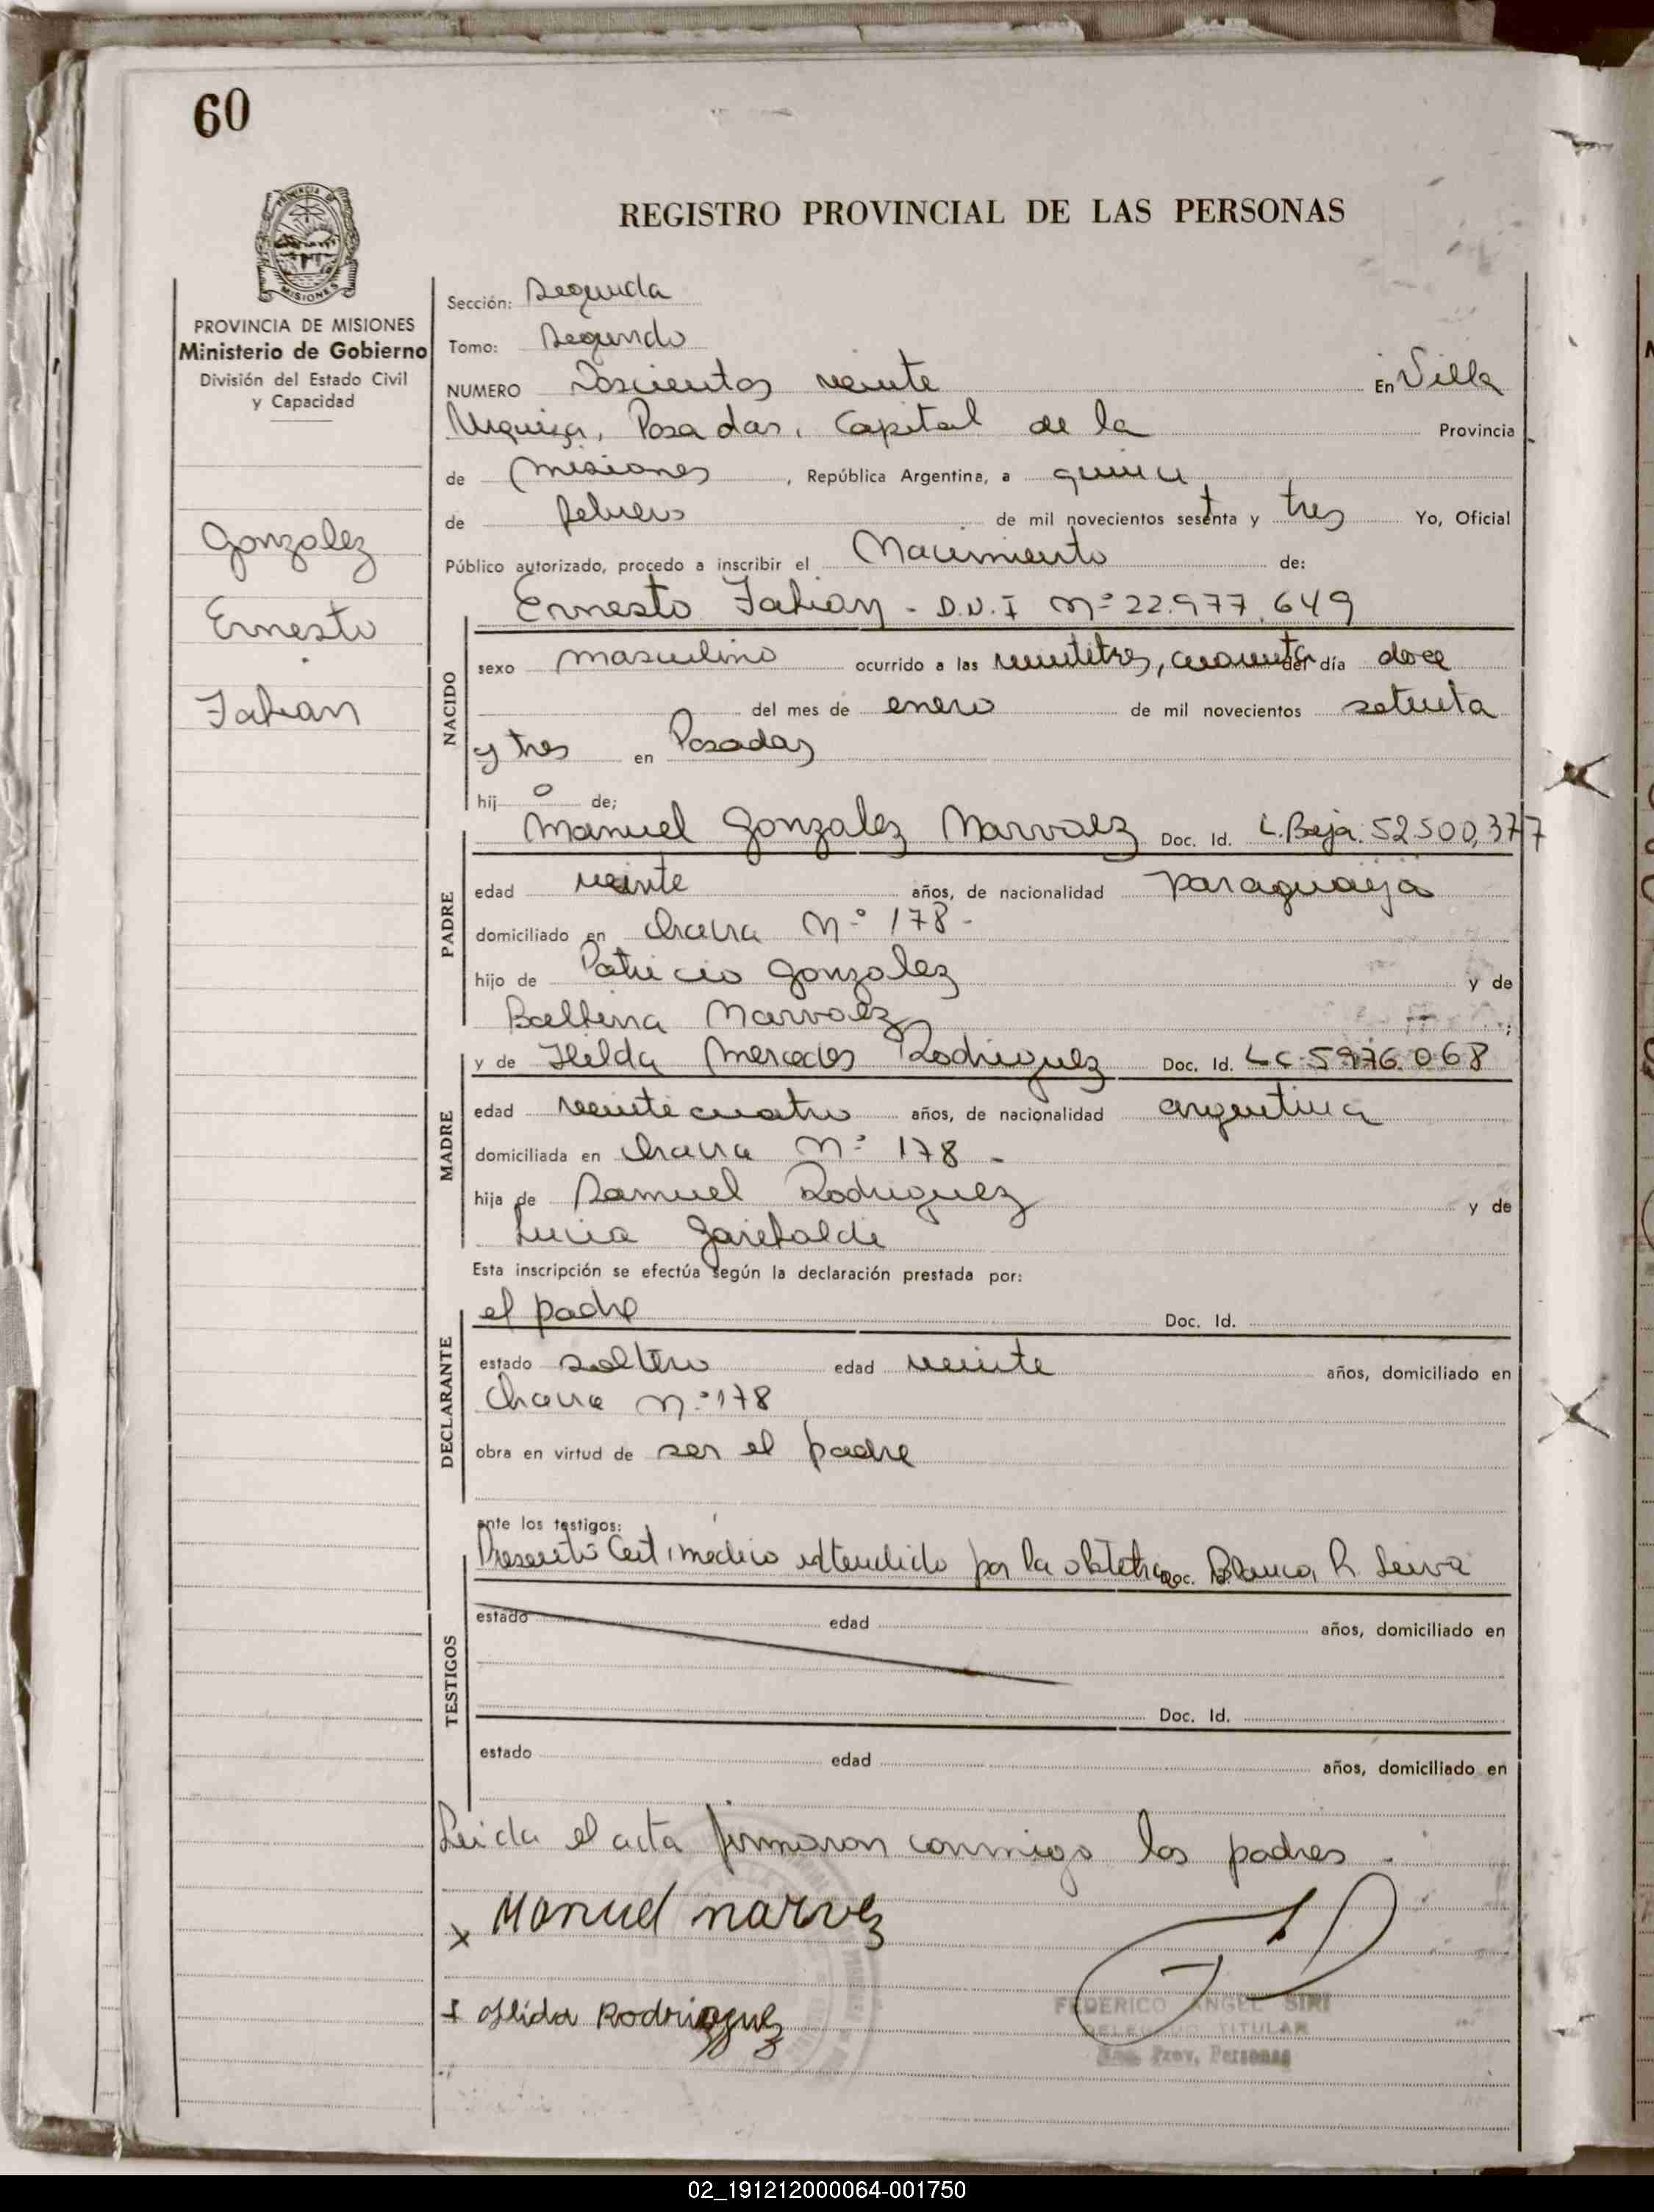 60
REGISTRO PROVINCIAL DE LAS PERSONAS
PROVINCIA DE MISIONES
MISIONES
PROVINCIA DE MISIONES
Ministerio de Gobierno
División del Estado Civil
y Capacidad
Gonzalez
Ernesto
Fabian
Sección: Segunda
Tomo: Segundo
NUMERO Doscientos veinte En Villa
Urquiza, Posadas, Capital de la Provincia
de Misiones, República Argentina, a quince
de febrero de mil novecientos sesetnta y tres Yo, Oficial
Público autorizado, procedo a inscribir el Nacimiento de:
Ernesto Fabian - D.N.I Nº 22.977.649
NACIDO
sexo masculino ocurrido a las veintitres, cuarenta del día doce
del mes de enero de mil novecientos setenta
y tres en Posadas
hij o de;
Manuel Gonzalez Narvaez Doc. Id. L. Baja. 52.500,377
PADRE
edad veinte años, de nacionalidad paraguaya
domiciliado en chacra Nº 178 -
hijo de Patricio Gonzalez y de
Balbina Narvaez ;
y de Hilda Mercedes Rodriguez Doc. Id. L C 5976.068
MADRE
edad veinticuatro años, de nacionalidad argentina
domiciliada en chacra Nº 178 -
hija de Samuel Rodriguez y de
Lucia Garibaldi
Esta inscripción se efectúa según la declaración prestada por:
el padre Doc. Id.
DECLARANTE
estado soltero edad veinte años, domiciliado en
Chacra Nº 178
obra en virtud de ser el padre
ante los testigos:
Presentó Cert. medico extendido por la obstetrica Doc. Blanca R. Leiva
TESTIGOS
estado edad años, domiciliado en
Doc. Id.
estado edad años, domiciliado en
Leida el acta firmaron conmigo los padres .
x Manuel narvez
x Hilda Rodriguez
FEDERICO ANGEL SIRI
DELEGADO TITULAR
Prov. Personas
02_191212000064-001750